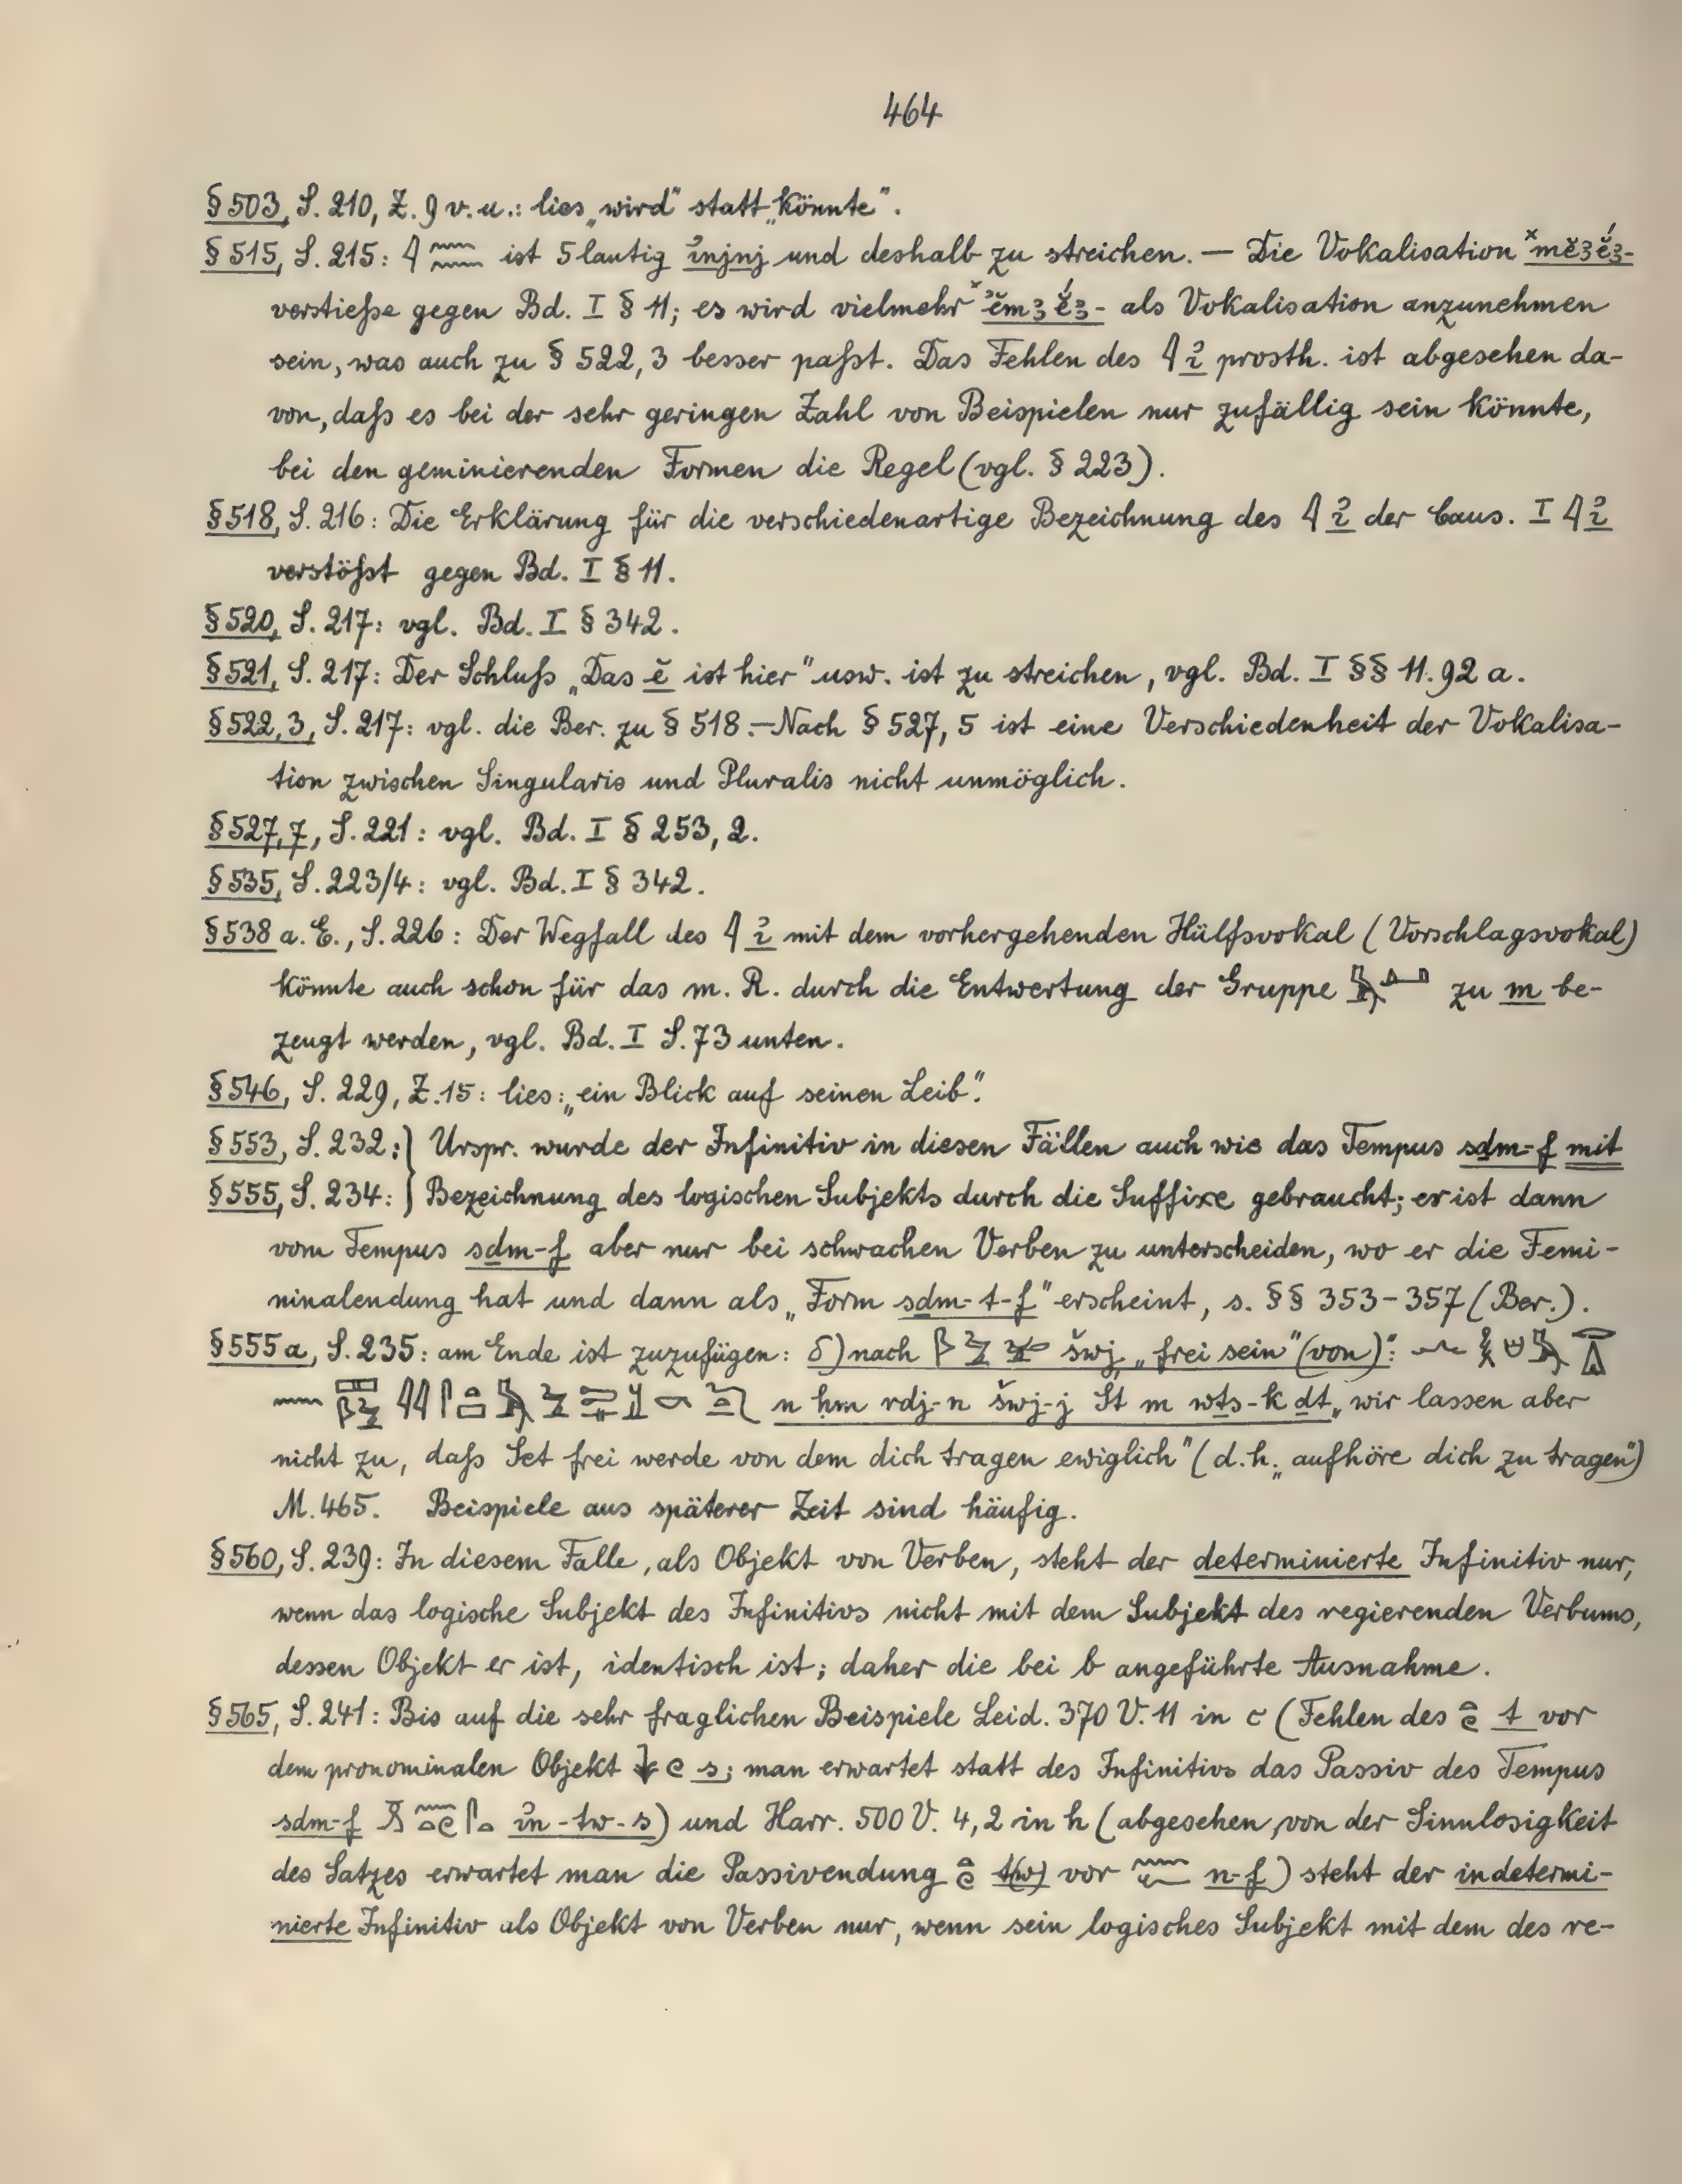 464
§ 503, S. 210, Z. 9 v. u.: lies „wird" statt „könnte".
§ 515, S. 215: 𓇋𓈖𓈖 ist 5 lautig ꞽnjnj und deshalb zu streichen. — Die Vokalisation ˣmĕꜣĕ́ꜣ-
verstieße gegen Bd. I § 11; es wird vielmehr ˣʾĕmꜣĕ́ꜣ- als Vokalisation anzunehmen
sein, was auch zu § 522, 3 besser paßt. Das Fehlen des 𓇋 ꞽ prosth. ist abgesehen da-
von, daß es bei der sehr geringen Zahl von Beispielen nur zufällig sein könnte,
bei den geminierenden Formen die Regel (vgl. § 223).
§ 518, S. 216: Die Erklärung für die verschiedenartige Bezeichnung des 𓇋 ꞽ der Caus. I 𓇋 ꞽ
verstößt gegen Bd. I § 11.
§ 520, S. 217: vgl. Bd. I § 342.
§ 521, S. 217: Der Schluß „Das ĕ ist hier" usw. ist zu streichen, vgl. Bd. I §§ 11. 92 a.
§ 522, 3, S. 217: vgl. die Ber. zu § 518. — Nach § 527, 5 ist eine Verschiedenheit der Vokalisa-
tion zwischen Singularis und Pluralis nicht unmöglich.
§ 527, 7, S. 221: vgl. Bd. I § 253, 2.
§ 535, S. 223/4: vgl. Bd. I § 342.
§ 538 a. E., S. 226: Der Wegfall des 𓇋 ꞽ mit dem vorhergehenden Hülfsvokal (Vorschlagsvokal)
könnte auch schon für das m. R. durch die Entwertung der Gruppe zu m be-
zeugt werden, vgl. Bd. I S. 73 unten.
§ 546, S. 229, Z. 15: lies: „ein Blick auf seinen Leib".
§ 553, S. 232: } Urspr. wurde der Infinitiv in diesen Fällen auch wie das Tempus sḏm-f mit
§ 555, S. 234: } Bezeichnung des logischen Subjekts durch die Suffixe gebraucht; er ist dann
vom Tempus sḏm-f aber nur bei schwachen Verben zu unterscheiden, wo er die Femi-
ninalendung hat und dann als „Form sḏm-t-f" erscheint, s. §§ 353-357 (Ber.).
§ 555 a, S. 235: am Ende ist zuzufügen: δ) nach šwj „frei sein" (von):
n ḥm rdj-n šwj-j St m wṯs-k ḏt „wir lassen aber
nicht zu, daß Set frei werde von dem dich tragen ewiglich" (d. h. „aufhöre dich zu tragen")
M. 465. Beispiele aus späterer Zeit sind häufig.
§ 560, S. 239: In diesem Falle, als Objekt von Verben, steht der determinierte Infinitiv nur,
wenn das logische Subjekt des Infinitivs nicht mit dem Subjekt des regierenden Verbums,
dessen Objekt er ist, identisch ist; daher die bei b angeführte Ausnahme.
§ 565, S. 241: Bis auf die sehr fraglichen Beispiele Leid. 370 V. 11 in c (Fehlen des 𓏏𓏲 t vor
dem pronominalen Objekt s; man erwartet statt des Infinitivs das Passiv des Tempus
sḏm-f ꞽn-tw-s) und Harr. 500 V. 4, 2 in h (abgesehen von der Sinnlosigkeit
des Satzes erwartet man die Passivendung 𓏏𓏲 t(w) vor 𓈖𓆑 n-f) steht der indetermi-
nierte Infinitiv als Objekt von Verben nur, wenn sein logisches Subjekt mit dem des re-